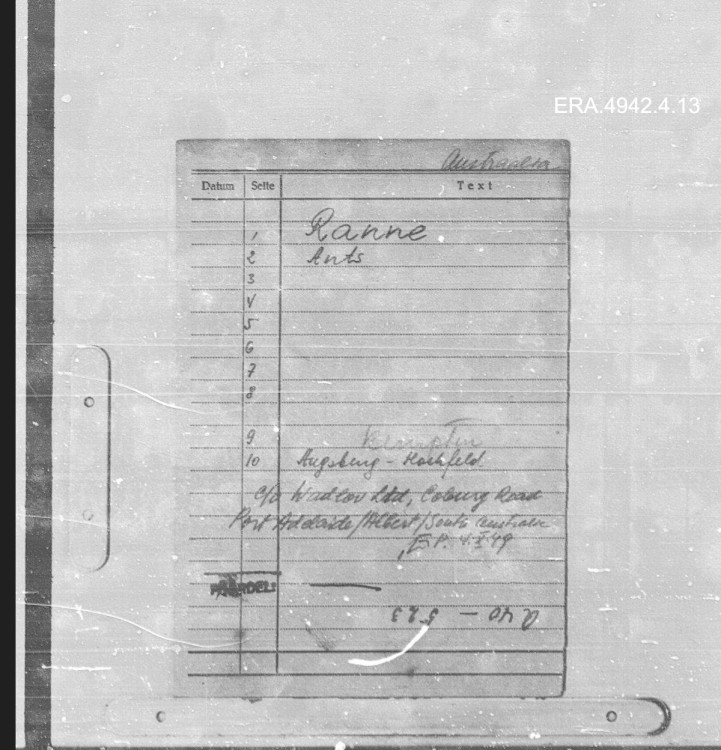 ERA.4942.4.13
Australia
Datum Seite Text
1 Ranne
2 Ants
3
4
5
6
7
8
9 Kempten
10 Augsburg - Hochfeld
c/o Wadlow Ltd, Coburg Road
Port Adelaide/Albert/South Australia
E.P. 4.X.49
A 40 — 523